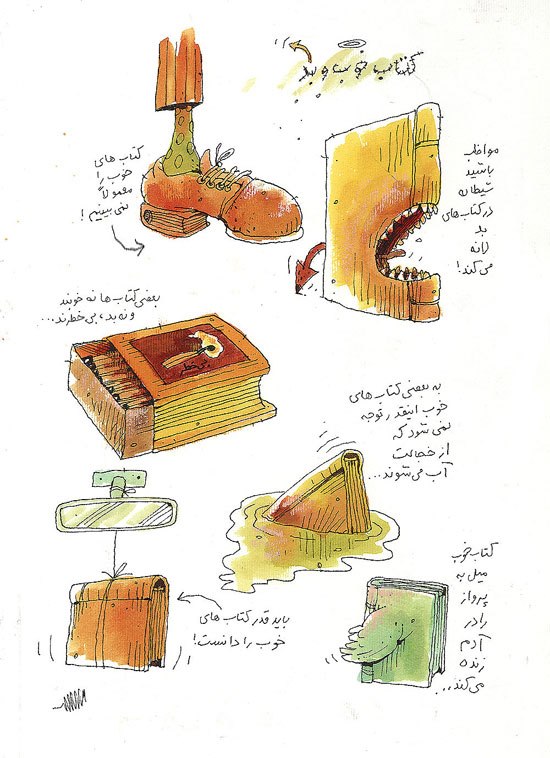 کتاب خوب و بد
کتاب های
خوب را
معمولاً
نمی بینیم!
مواظب
باشید
شیطانه
در کتاب های
بد
لانه
می کند!
بعضی کتاب ها نه خوبند
و نه بد، بی خطرند...
بی خطر
به بعضی کتاب های
خوب اینقدر توجه
نمی شود که
از خجالت
آب می شوند...
باید قدر کتاب های
خوب را دانست!
کتاب خوب
میل به
پرواز
را در
آدم
زنده
می کند...